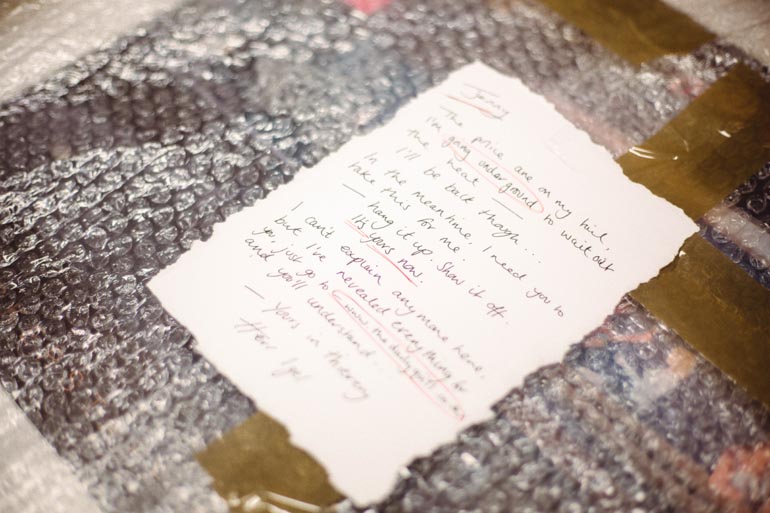 Jonny
The police are on my tail.
I'm going underground to wait out
the heat —
I'll be back though...
In the meantime, I need you to
take this for me.
— hang it up. Show it off.
It's yours now.
I can't explain anymore here.
but I've revealed everything for
you, just go to
and you'll understand...
— Yours in thievery
Herr